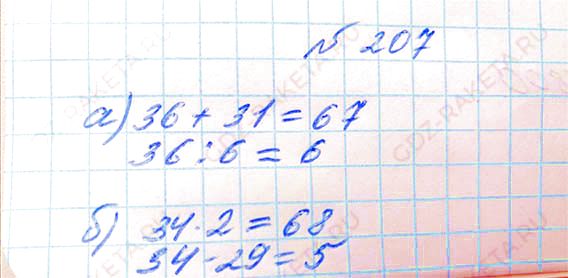 № 207
а) 36 + 31 = 67
36 : 6 = 6
б) 34 · 2 = 68
34 - 29 = 5
GDZ-RAKETA.RU